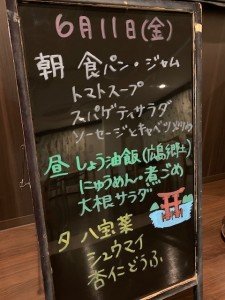 6月11日(金)
朝 食パン・ジャム
トマトスープ
スパゲティサラダ
ソーセージとキャベツソテー
昼 しょう油飯(広島郷土)
にゅうめん・煮ごめ
大根サラダ
夕 八宝菜
シュウマイ
杏仁どうふ